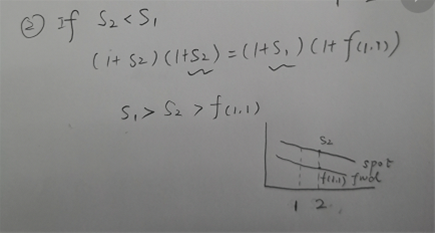 ② If S2 < S1
(1+ S2) (1+S2) = (1+S1) (1+ f(1,1))
S1 > S2 > f(1,1)
S2
spot
f(1,1) fwd
1 2